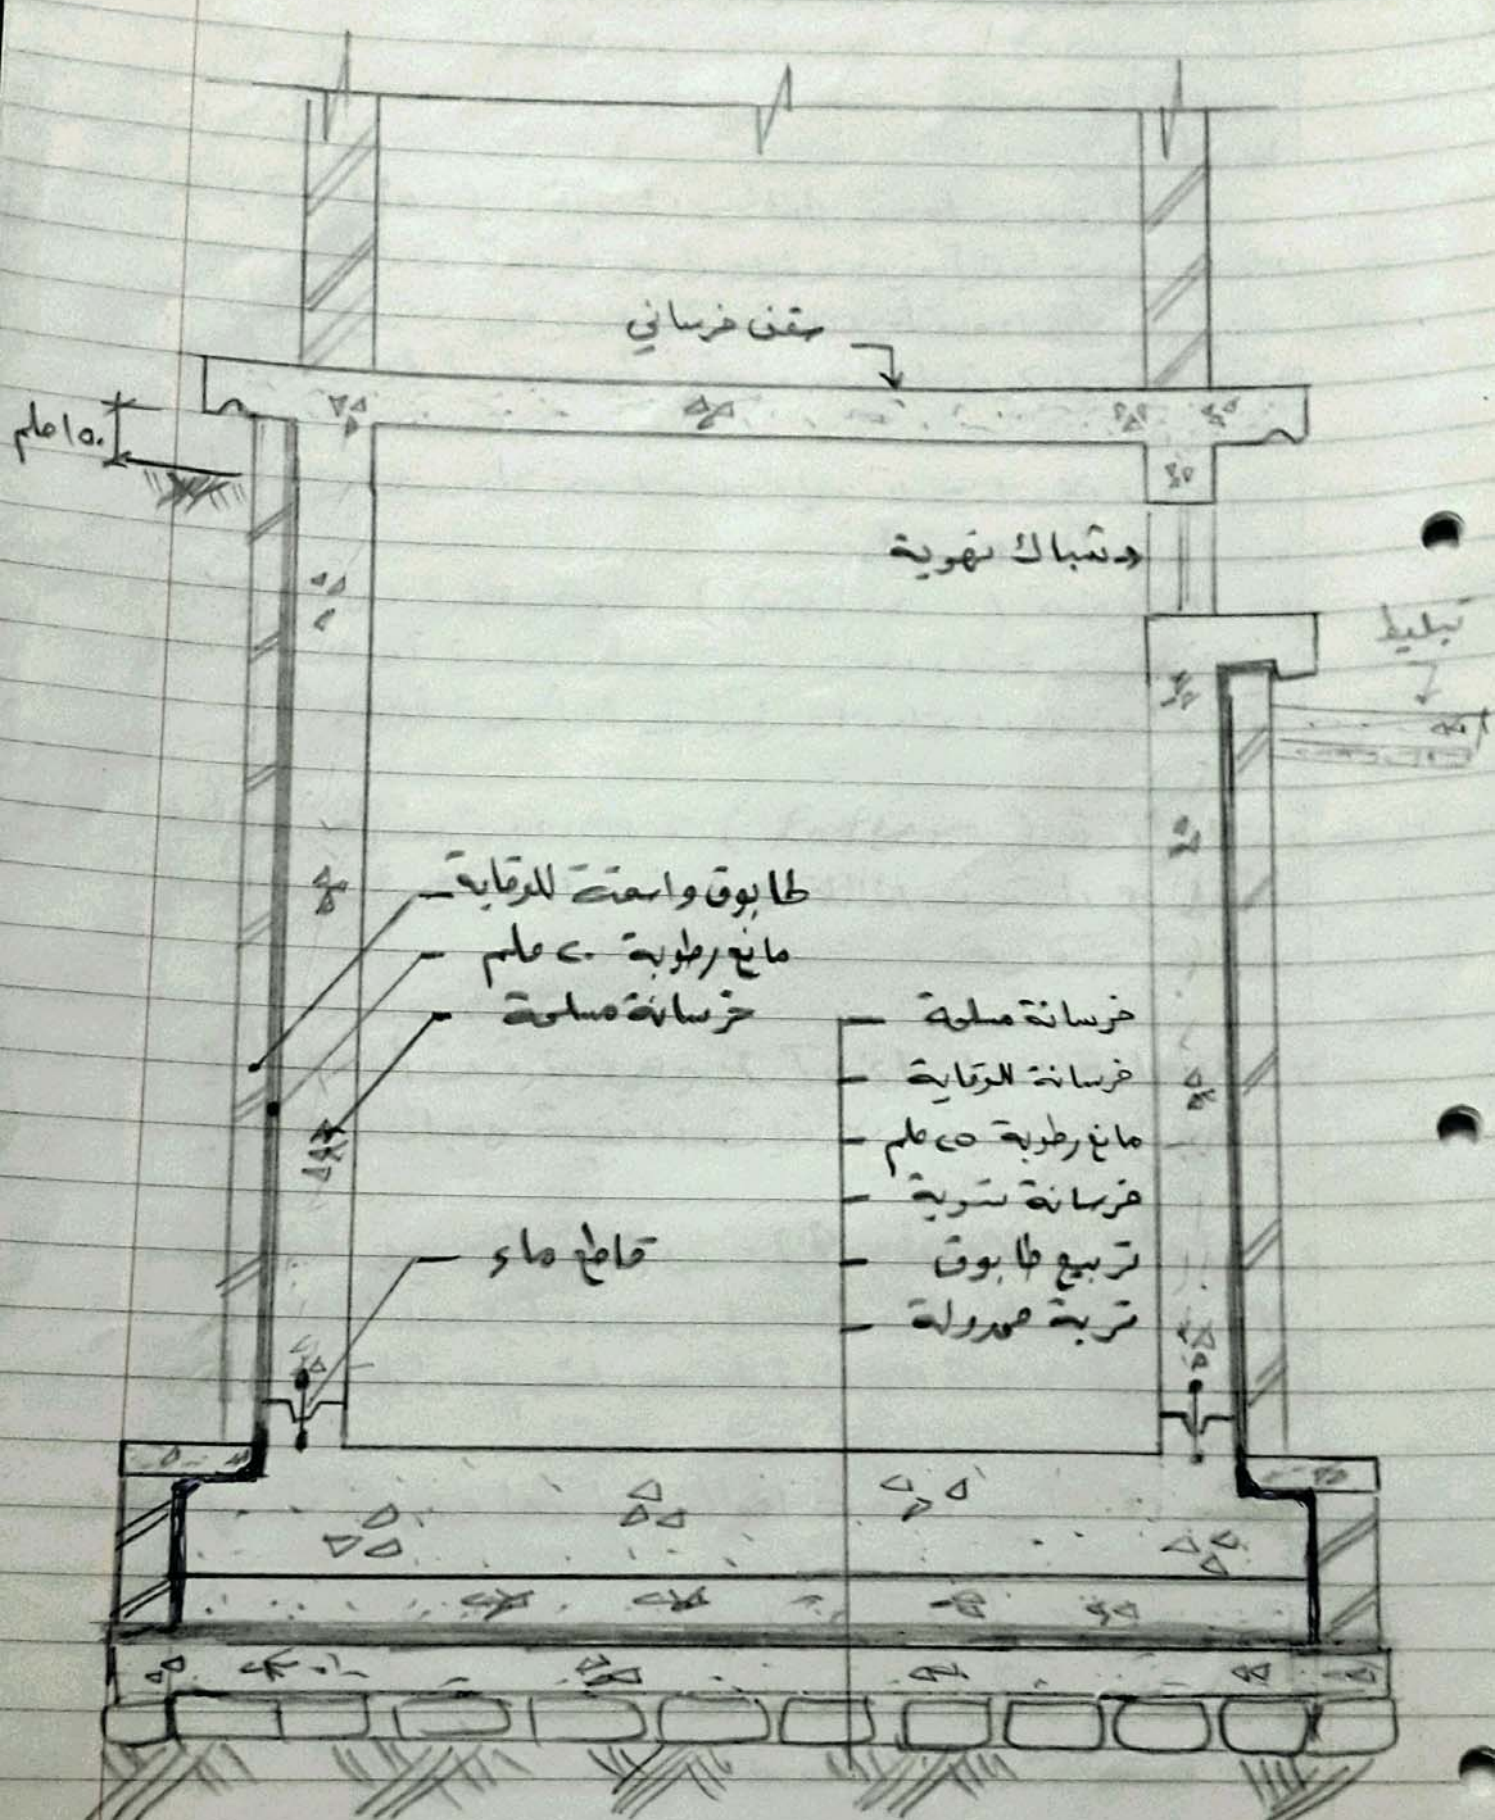 سقف خرساني
١٥٠ ملم
شباك تهوية
تبليط
طابوق واسمنت للوقاية
مانع رطوبة ٢٠ ملم
خرسانة مسلحة
قاطع ماء
خرسانة مسلحة
خرسانة للوقاية
مانع رطوبة ٢٥ ملم
خرسانة تسوية
تربيع طابوق
تربة محدولة